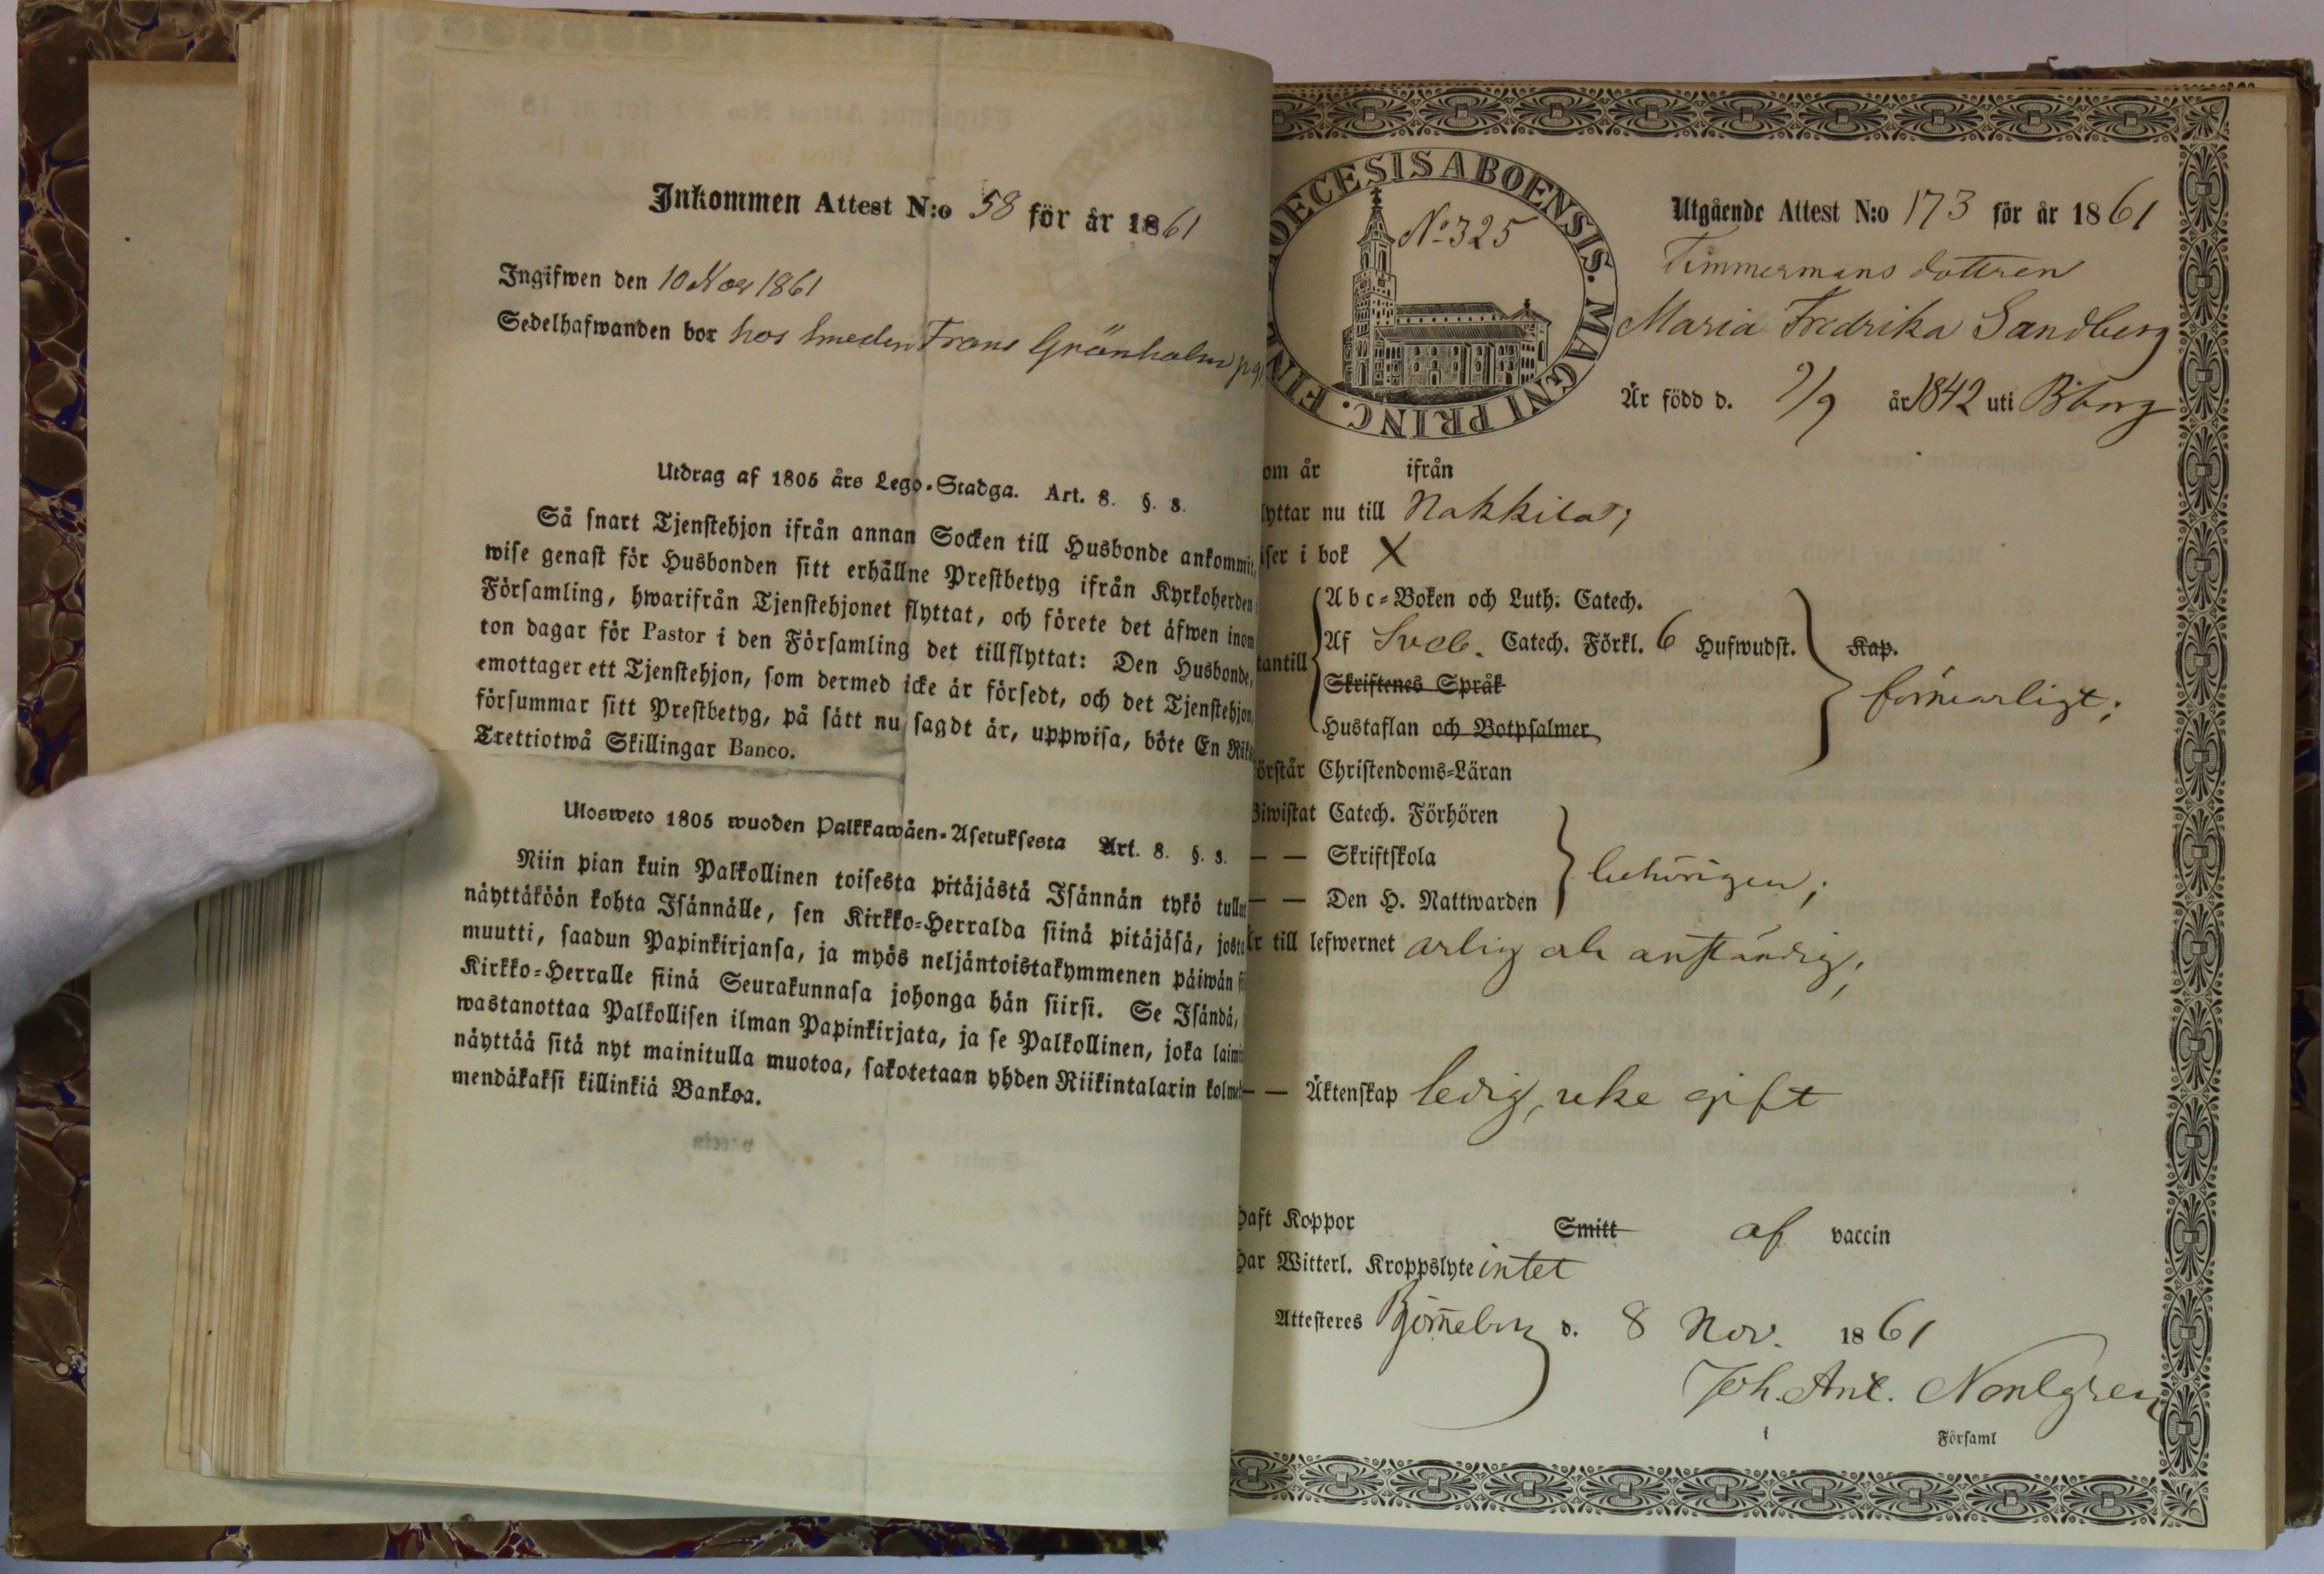 Inkommen Attest N:o 58 för år 1861
Ingifwen den 10 Nov 1861
Sedelhafwanden bor hos Smeden Frans Grönholm
Utdrag af 1805 års Lego-Stadga. Art. 8. §. 8.
Så snart Tjenstehjon ifrån annan Socken till Husbonde ankommit,
wise genast för Husbonden sitt erhållne Prestbetyg ifrån Kyrkoherden
Församling, hwarifrån Tjenstehjonet flyttat, och förete det äfwen inom
ton dagar för Pastor i den Församling det tillflyttat: Den Husbonde,
emottager ett Tjenstehjon, som dermed icke är försedt, och det Tjenstehjon,
försummar sitt Prestbetyg, på sätt nu sagdt är, uppwisa, böte En Riks
Trettiotwå Skillingar Banco.
Ulosweto 1805 wuoden Palkkawäen-Asetuksesta Art. 8. §. 8.
Niin pian kuin Palkollinen toisesta pitäjästä Isännän tykö tullut
näyttäköön kohta Isännälle, sen Kirkko-Herralda siinä pitäjäsä, josta
muutti, saadun Papinkirjansa, ja myös neljäntoistakymmenen päiwän si
Kirkko-Herralle siinä Seurakunnasa johonga hän siirsi. Se Isändä,
wastanottaa Palkollisen ilman Papinkirjata, ja se Palkollinen, joka laimi
näyttää sitä nyt mainitulla muotoa, sakotetaan yhden Riikintalarin kolme
mendäkaksi killinkiä Bankoa.
OECESIS ABOENSIS. MAGNI PRINC. FIN
No 325
Utgående Attest N:o 173 för år 1861
Timmermans dottren
Maria Fredrika Sandberg
Är född d. 9/9 år 1842 uti Bborg
om år ifrån
lyttar nu till Nakkila;
iser i bok X
Abc-Boken och Luth. Catech.
tantill Af Sveb. Catech. Förkl. 6 Hufwudst. Kap.
Skriftenes Språk försvarligt;
Hustaflan och Botpsalmer
örstår Christendoms-Läran
Biwistat Catech. Förhören
— — Skriftskola behörigen;
— — Den H. Nattwarden
Är till lefwernet ärlig och anständig;
— — Äktenskap ledig, icke gift
Haft Koppor Smitt af vaccin
Har Witterl. Kroppslyte intet
Attesteres Björneborg d. 8 Nov. 1861
Joh. Ant. Norlgren
i Församl